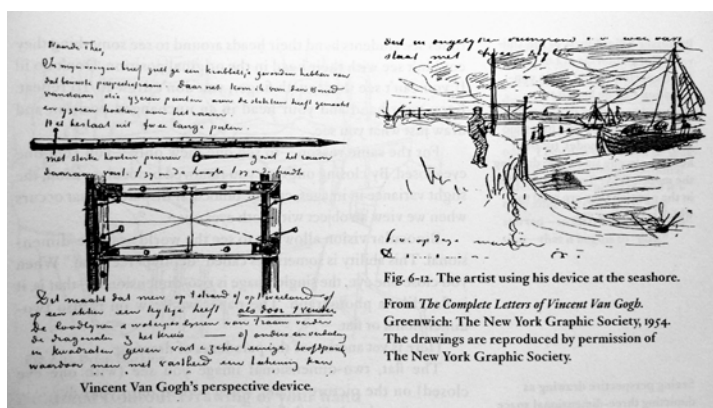 Waarde Theo,
In mijn vorigen brief zult ge een krabbeltje gevonden hebben van
dat bewuste perspectiefraam. Daar net kom ik van den smid
vandaan die ijzeren punten aan de stokken heeft gemaakt
en ijzeren hoeken aan het raam.
Het bestaat uit twee lange palen.
met sterke houten pennen
daaraan vast
Dit maakt dat men op 't strand of op 't weiland of
op een akker een kijkje heeft als door 't venster
de loodlijnen & waterpas lijnen van 't raam verder
de diagonalen & het kruis of anders een verdeeling
in kwadraten geven vast & zeker eenige hoofdpunten
waardoor men met vastheid een teekening kan
Vincent Van Gogh's perspective device.
staat met
Fig. 6-12. The artist using his device at the seashore.
From The Complete Letters of Vincent Van Gogh.
Greenwich: The New York Graphic Society, 1954.
The drawings are reproduced by permission of
The New York Graphic Society.